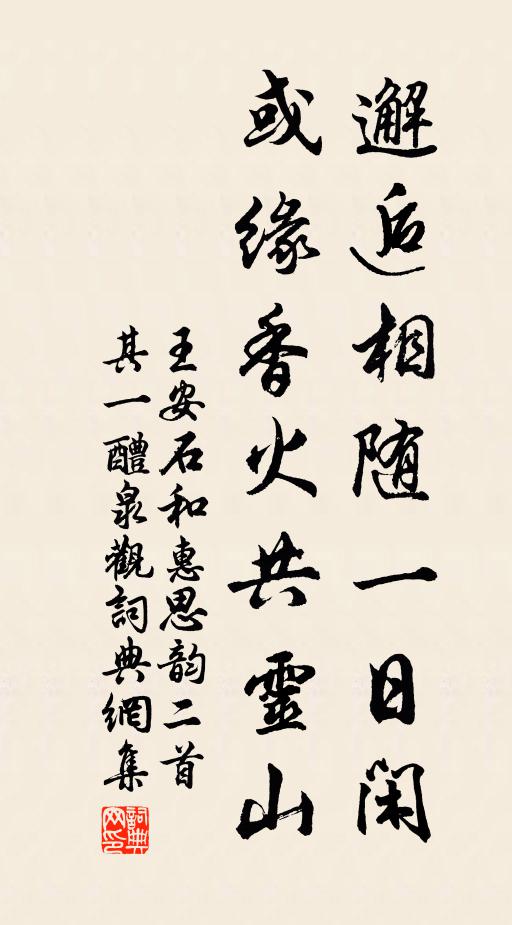 邂逅相随一日闲
或缘香火共靈山
王安石和惠思韵二首
其一醴泉觀詞典網集
詞典
网印